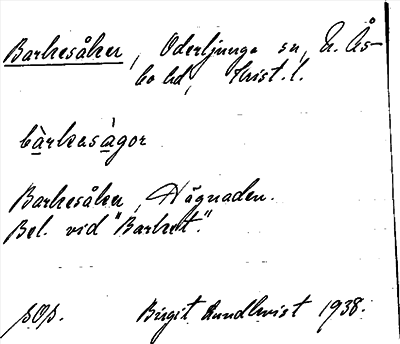 Barkesåker, Oderljunga sn, N. Ås-
bo hd, Krist. l.
bàrkesàgor
Barkesåker, Hägnaden.
Bel. vid "Barket."
SOS. Birgit Rundkvist 1938.